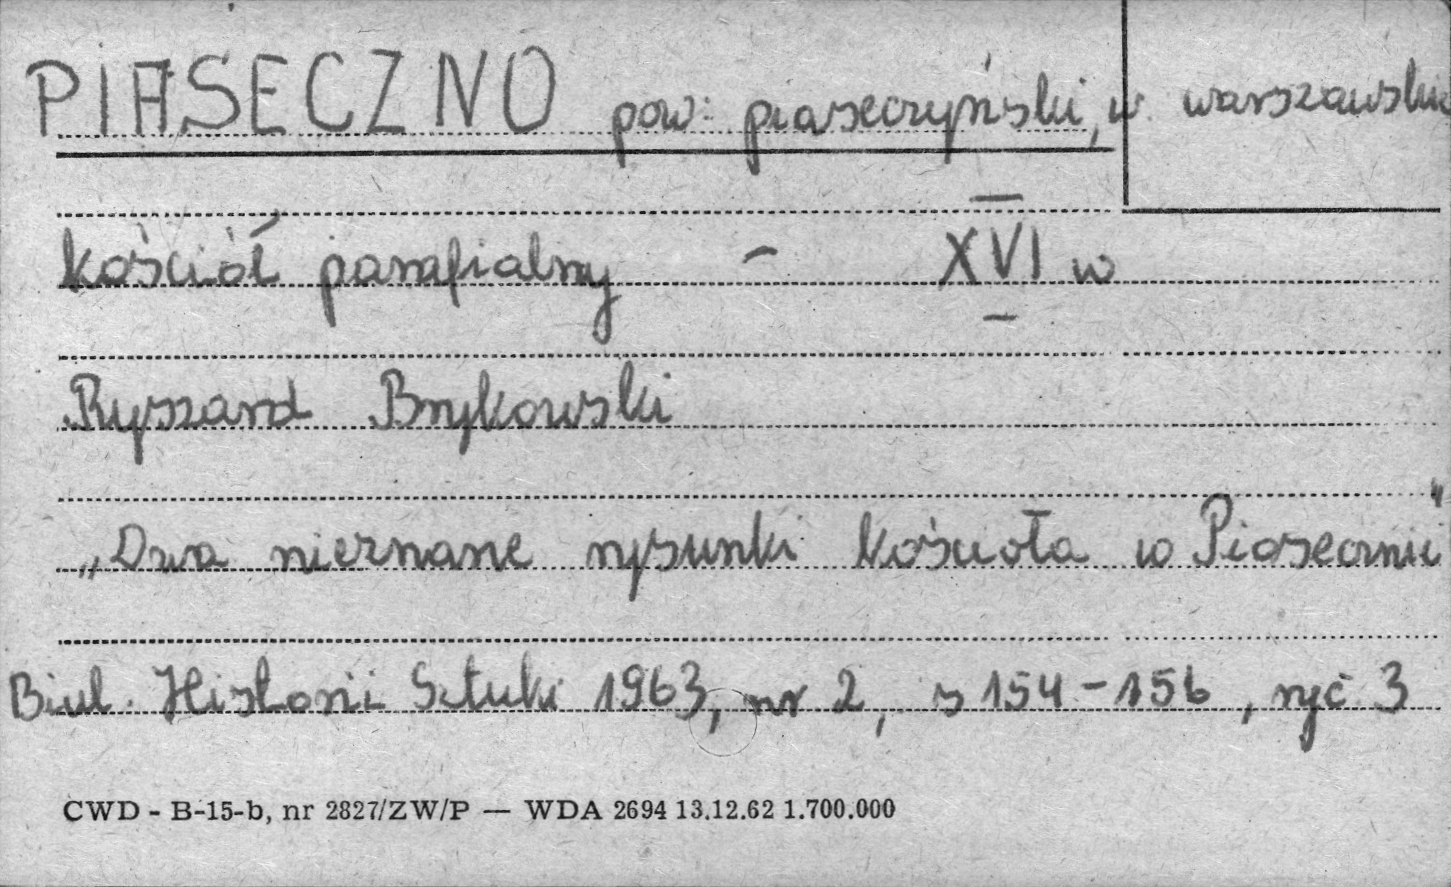 PIASECZNO pow: piaseczyński, w. warszawskie
Kościół parafialny - XVI w
Ryszard Brykowski
„Dwa nieznane rysunki kościoła w Piasecznie"
Biul. Historii Sztuki 1963, nr 2, s 154-156, ryc 3
CWD - B-15-b, nr 2827/ZW/P — WDA 2694 13.12.62 1.700.000